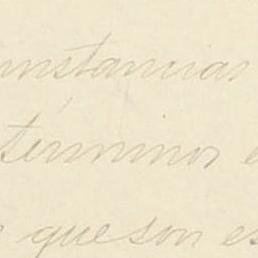 unstancias
términos e
que son es